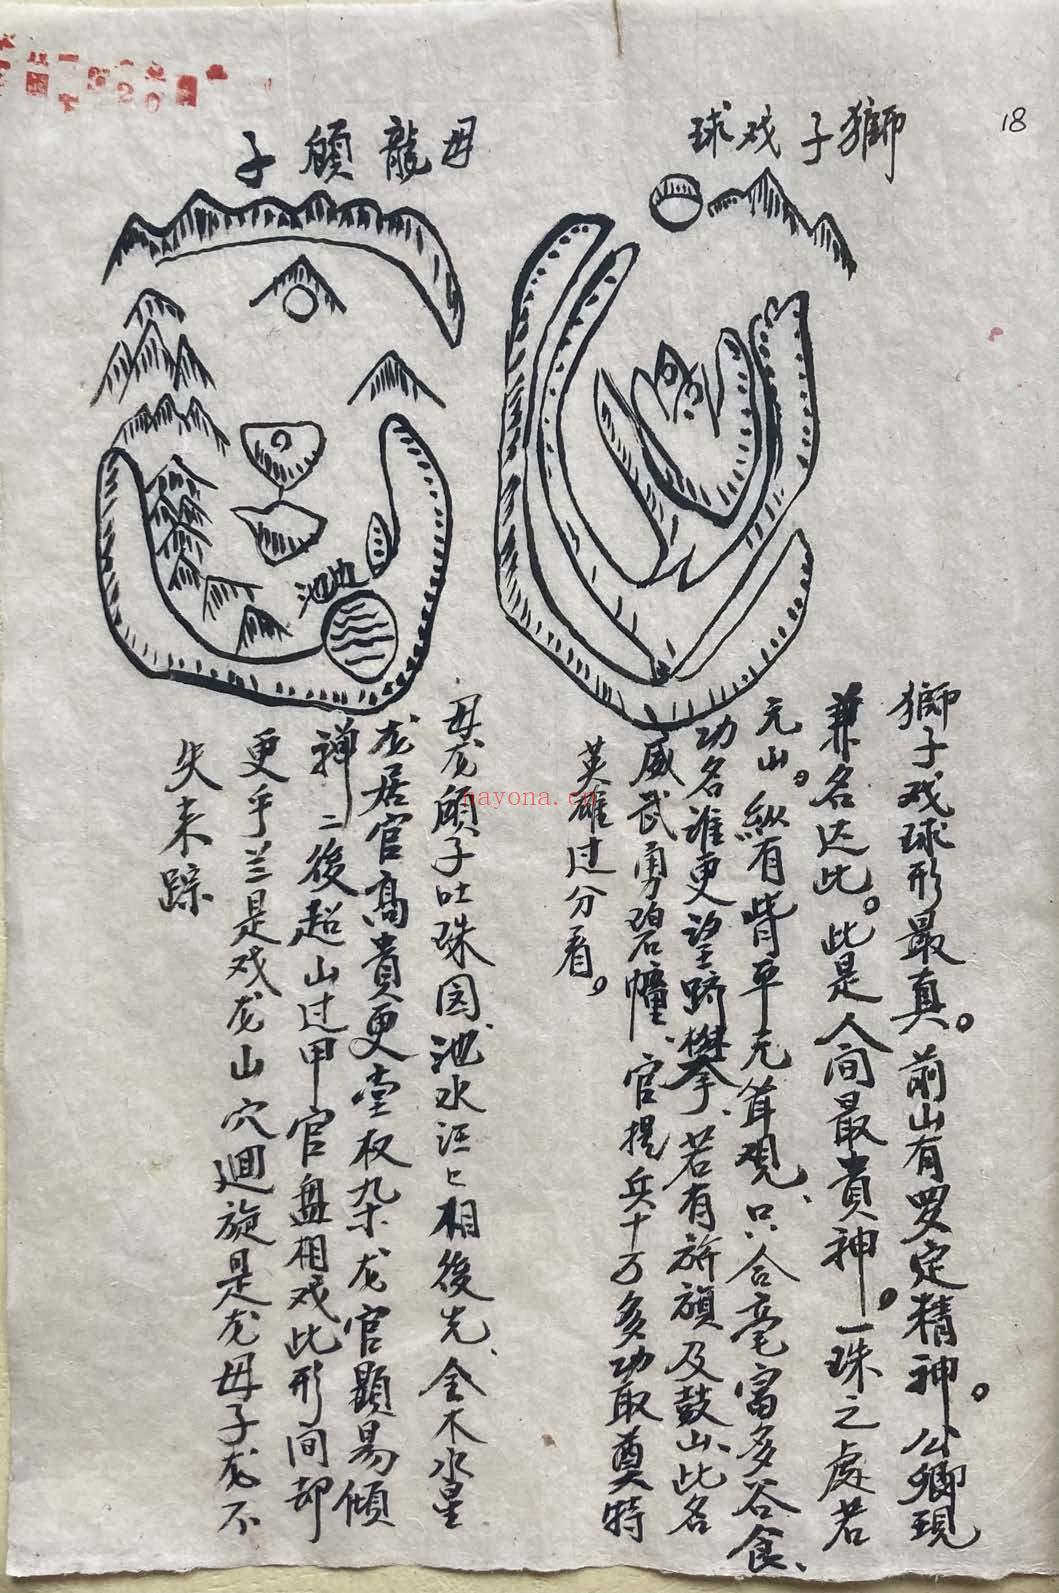 18
獅子戏球
母龍顧子
池
獅子戏球形最真。前山有罗定精神。公卿現
兼名达此。此是人间最貴神。一珠之處若
元山。縱有背平充耸观、只合毫富多谷食、
功名谁更望跻攀、若有旂旗及鼓山、此名
威武勇碧幢、官提兵十万多功取奠特
英雄过分看。
母龙顧子吐珠园、池水汪〻相後先、金木水星
龙居官高貴更 权杂龙官顯易傾
禅二後起山过甲官盘相戏此形间却
更乎兰是戏龙山穴迴旋是龙母子龙不
失来踪
nayona.cn